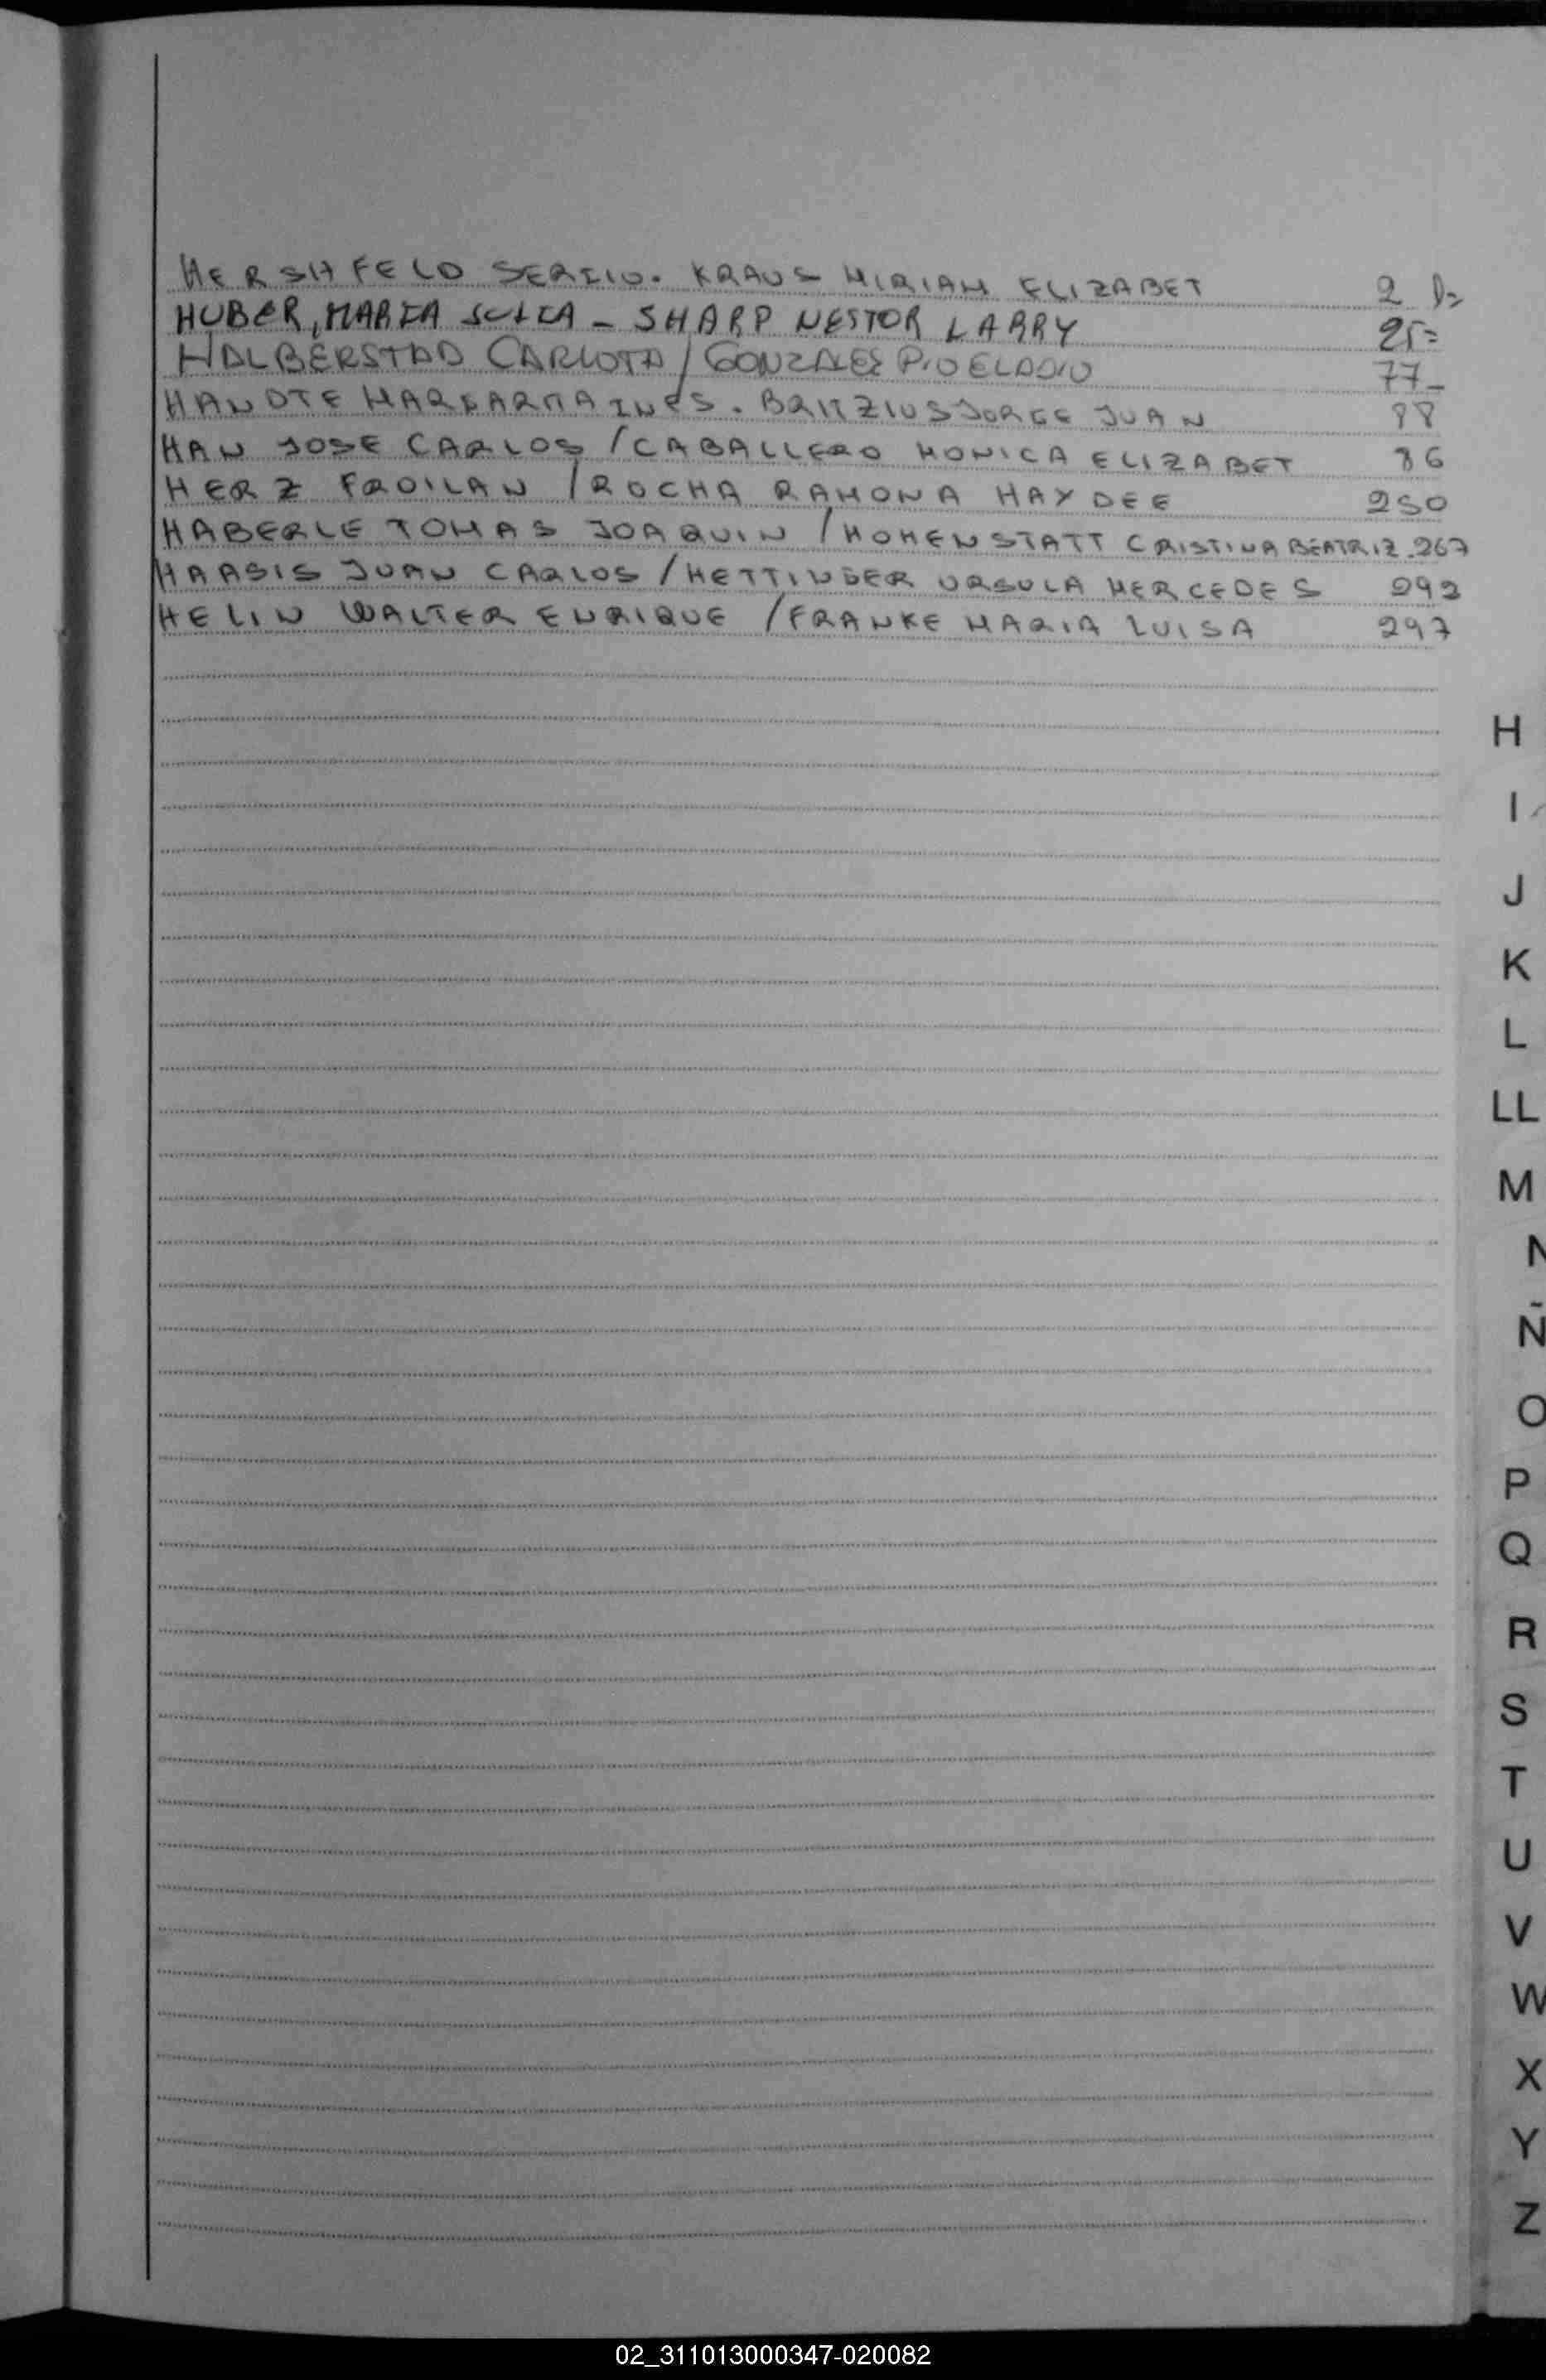 HERSHFELD SERGIO. KRAUS MIRIAM ELIZABET 2
HUBER, MARIA JULIA - SHARP NESTOR LARRY 25=
HALBERSTAD CARLOTA / GONZALES PIO ELADIO 77-
HANDTE MARGARITA INES. BRITZIUS JORGE JUAN 88
HAN JOSE CARLOS / CABALLERO MONICA ELIZABET 86
HERZ FROILAN / ROCHA RAMONA HAYDEE 250
HABERLE TOMAS JOAQUIN / HOHENSTATT CRISTINA BEATRIZ. 267
HAASIS JUAN CARLOS / HETTINGER URSULA MERCEDES 292
HELIN WALTER ENRIQUE / FRANKE MARIA LUISA 297
H
I
J
K
L
LL
M
N
Ñ
O
P
Q
R
S
T
U
V
W
X
Y
Z
02_311013000347-020082